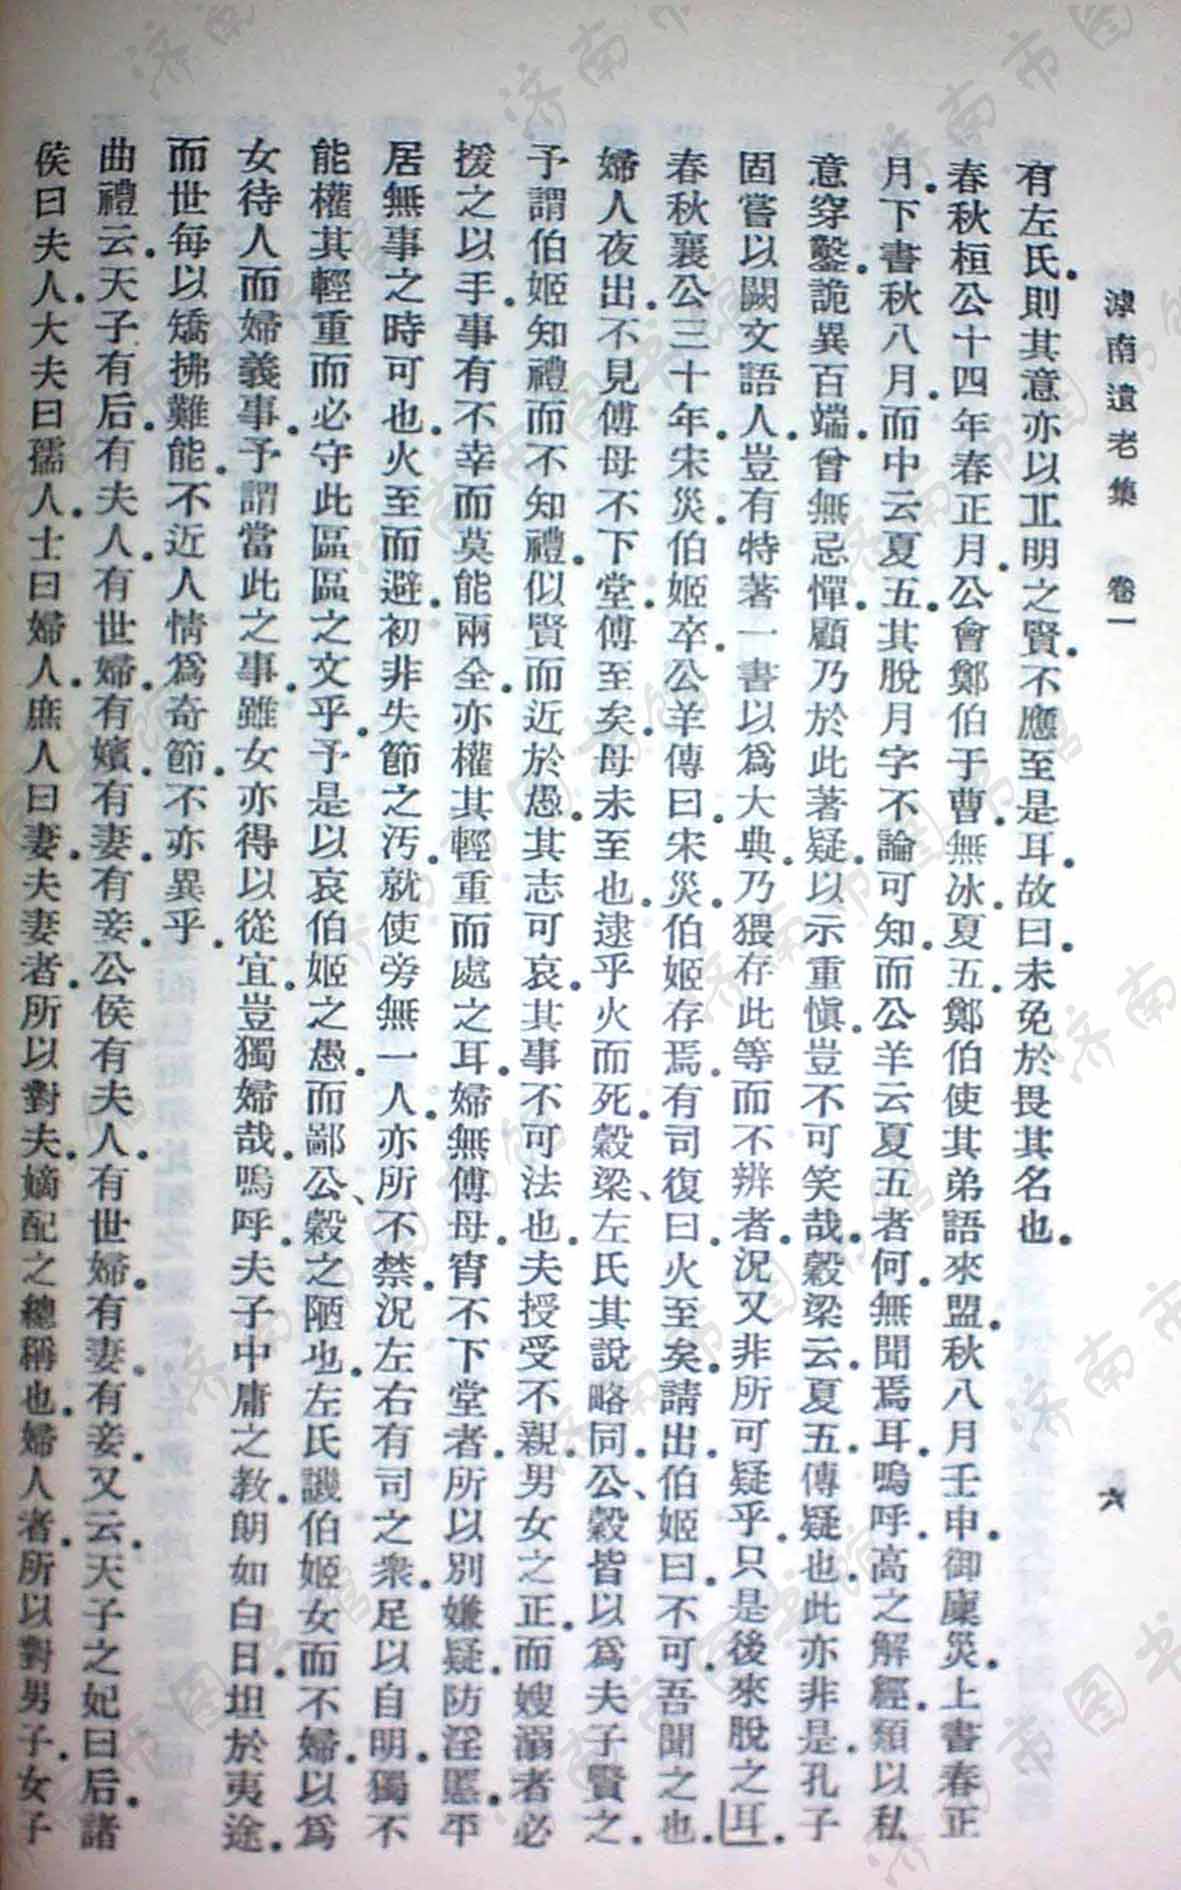 滹南遺老集　卷一　六
有左氏。則其意亦以丘明之賢。不應至是耳。故曰。未免於畏其名也。
春秋桓公十四年春正月。公會鄭伯于曹。無冰。夏五。鄭伯使其弟語來盟。秋八月壬申。御廩災。上書春正
月。下書秋八月。而中云夏五。其脫月字不論可知。而公羊云夏五者何。無聞焉耳。嗚呼。高之解經。類以私
意穿鑿。詭異百端。曾無忌憚。顧乃於此著疑。以示重慎。豈不可笑哉。穀梁云。夏五。傳疑也。此亦非是。孔子
固嘗以闕文語人。豈有特著一書以爲大典。乃猥存此等而不辨者。況又非所可疑乎。只是後來脫之耳。
春秋襄公三十年。宋災。伯姬卒。公羊傳曰。宋災。伯姬存焉。有司復曰。火至矣。請出。伯姬曰。不可。吾聞之也。
婦人夜出。不見傅母不下堂。傅至矣。母未至也。逮乎火而死。穀梁、左氏其說略同。公、穀皆以爲夫子賢之。
予謂伯姬知禮而不知禮。似賢而近於愚。其志可哀。其事不可法也。夫授受不親。男女之正。而嫂溺者必
援之以手。事有不幸而莫能兩全。亦權其輕重而處之耳。婦無傅母。宵不下堂者。所以別嫌疑。防淫慝。平
居無事之時可也。火至而避。初非失節之汚。就使旁無一人。亦所不禁。況左右有司之衆。足以自明。獨不
能權其輕重而必守此區區之文乎。予是以哀伯姬之愚。而鄙公、穀之陋也。左氏譏伯姬女而不婦。以爲
女待人而婦義事。予謂當此之事。雖女亦得以從宜。豈獨婦哉。嗚呼。夫子中庸之教。朗如白日。坦於夷途。
而世每以矯拂難能。不近人情爲奇節。不亦異乎。
曲禮云。天子有后。有夫人。有世婦。有嬪。有妻。有妾。公侯有夫人。有世婦。有妻。有妾。又云。天子之妃曰后。諸
侯曰夫人。大夫曰孺人。士曰婦人。庶人曰妻。夫妻者。所以對夫。嫡配之總稱也。婦人者。所以對男子。女子